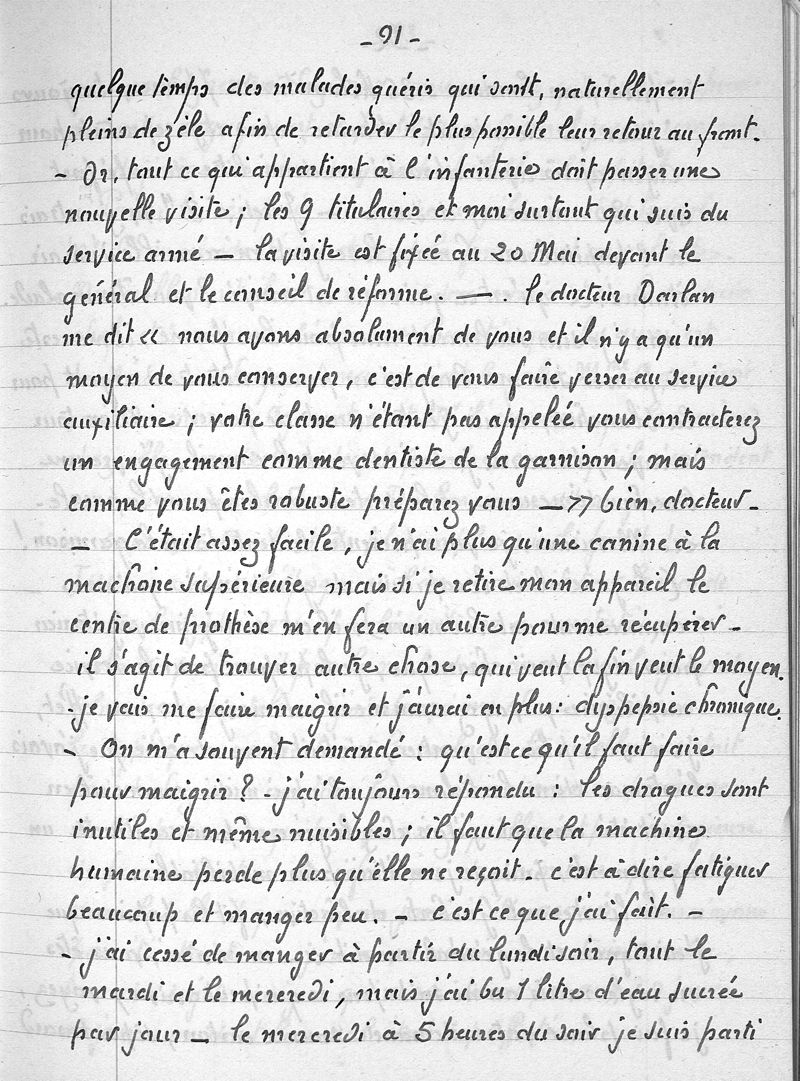 - 91 -
quelque temps des malades guéris qui sont, naturellement
pleins de zèle afin de retarder le plus possible leur retour au front.
- Or, tout ce qui appartient à l'infanterie doit passer une
nouvelle visite ; les 9 titulaires et moi surtout qui suis du
service armé — la visite est fixée au 20 Mai devant le
général et le conseil de réforme. — . le docteur Darlan
me dit « nous avons absolument de vous et il n'y a qu'un
moyen de vous conserver, c'est de vous faire verser au service
auxiliaire ; votre classe n'étant pas appelée vous contracterez
un engagement comme dentiste de la garnison ; mais
comme vous êtes robuste préparez vous — » bien, docteur -
- C'était assez facile, je n'ai plus qu'une canine à la
machoire supérieure mais si je retire mon appareil le
centre de prothèse m'en fera un autre pour me récupérer -
il s'agit de trouver autre chose, qui veut la fin veut le moyen.
- je vais me faire maigrir et j'aurai en plus : dyspepsie chronique.
- On m'a souvent demandé : qu'est ce qu'il faut faire
pour maigrir ? - j'ai toujours répondu : les drogues sont
inutiles et même nuisibles ; il faut que la machine
humaine perde plus qu'elle ne reçoit - c'est à dire fatiguer
beaucoup et manger peu. - c'est ce que j'ai fait. -
- j'ai cessé de manger à partir du lundi soir, tout le
mardi et le mercredi, mais j'ai bu 1 litre d'eau sucrée
par jour — le mercredi à 5 heures du soir je suis parti